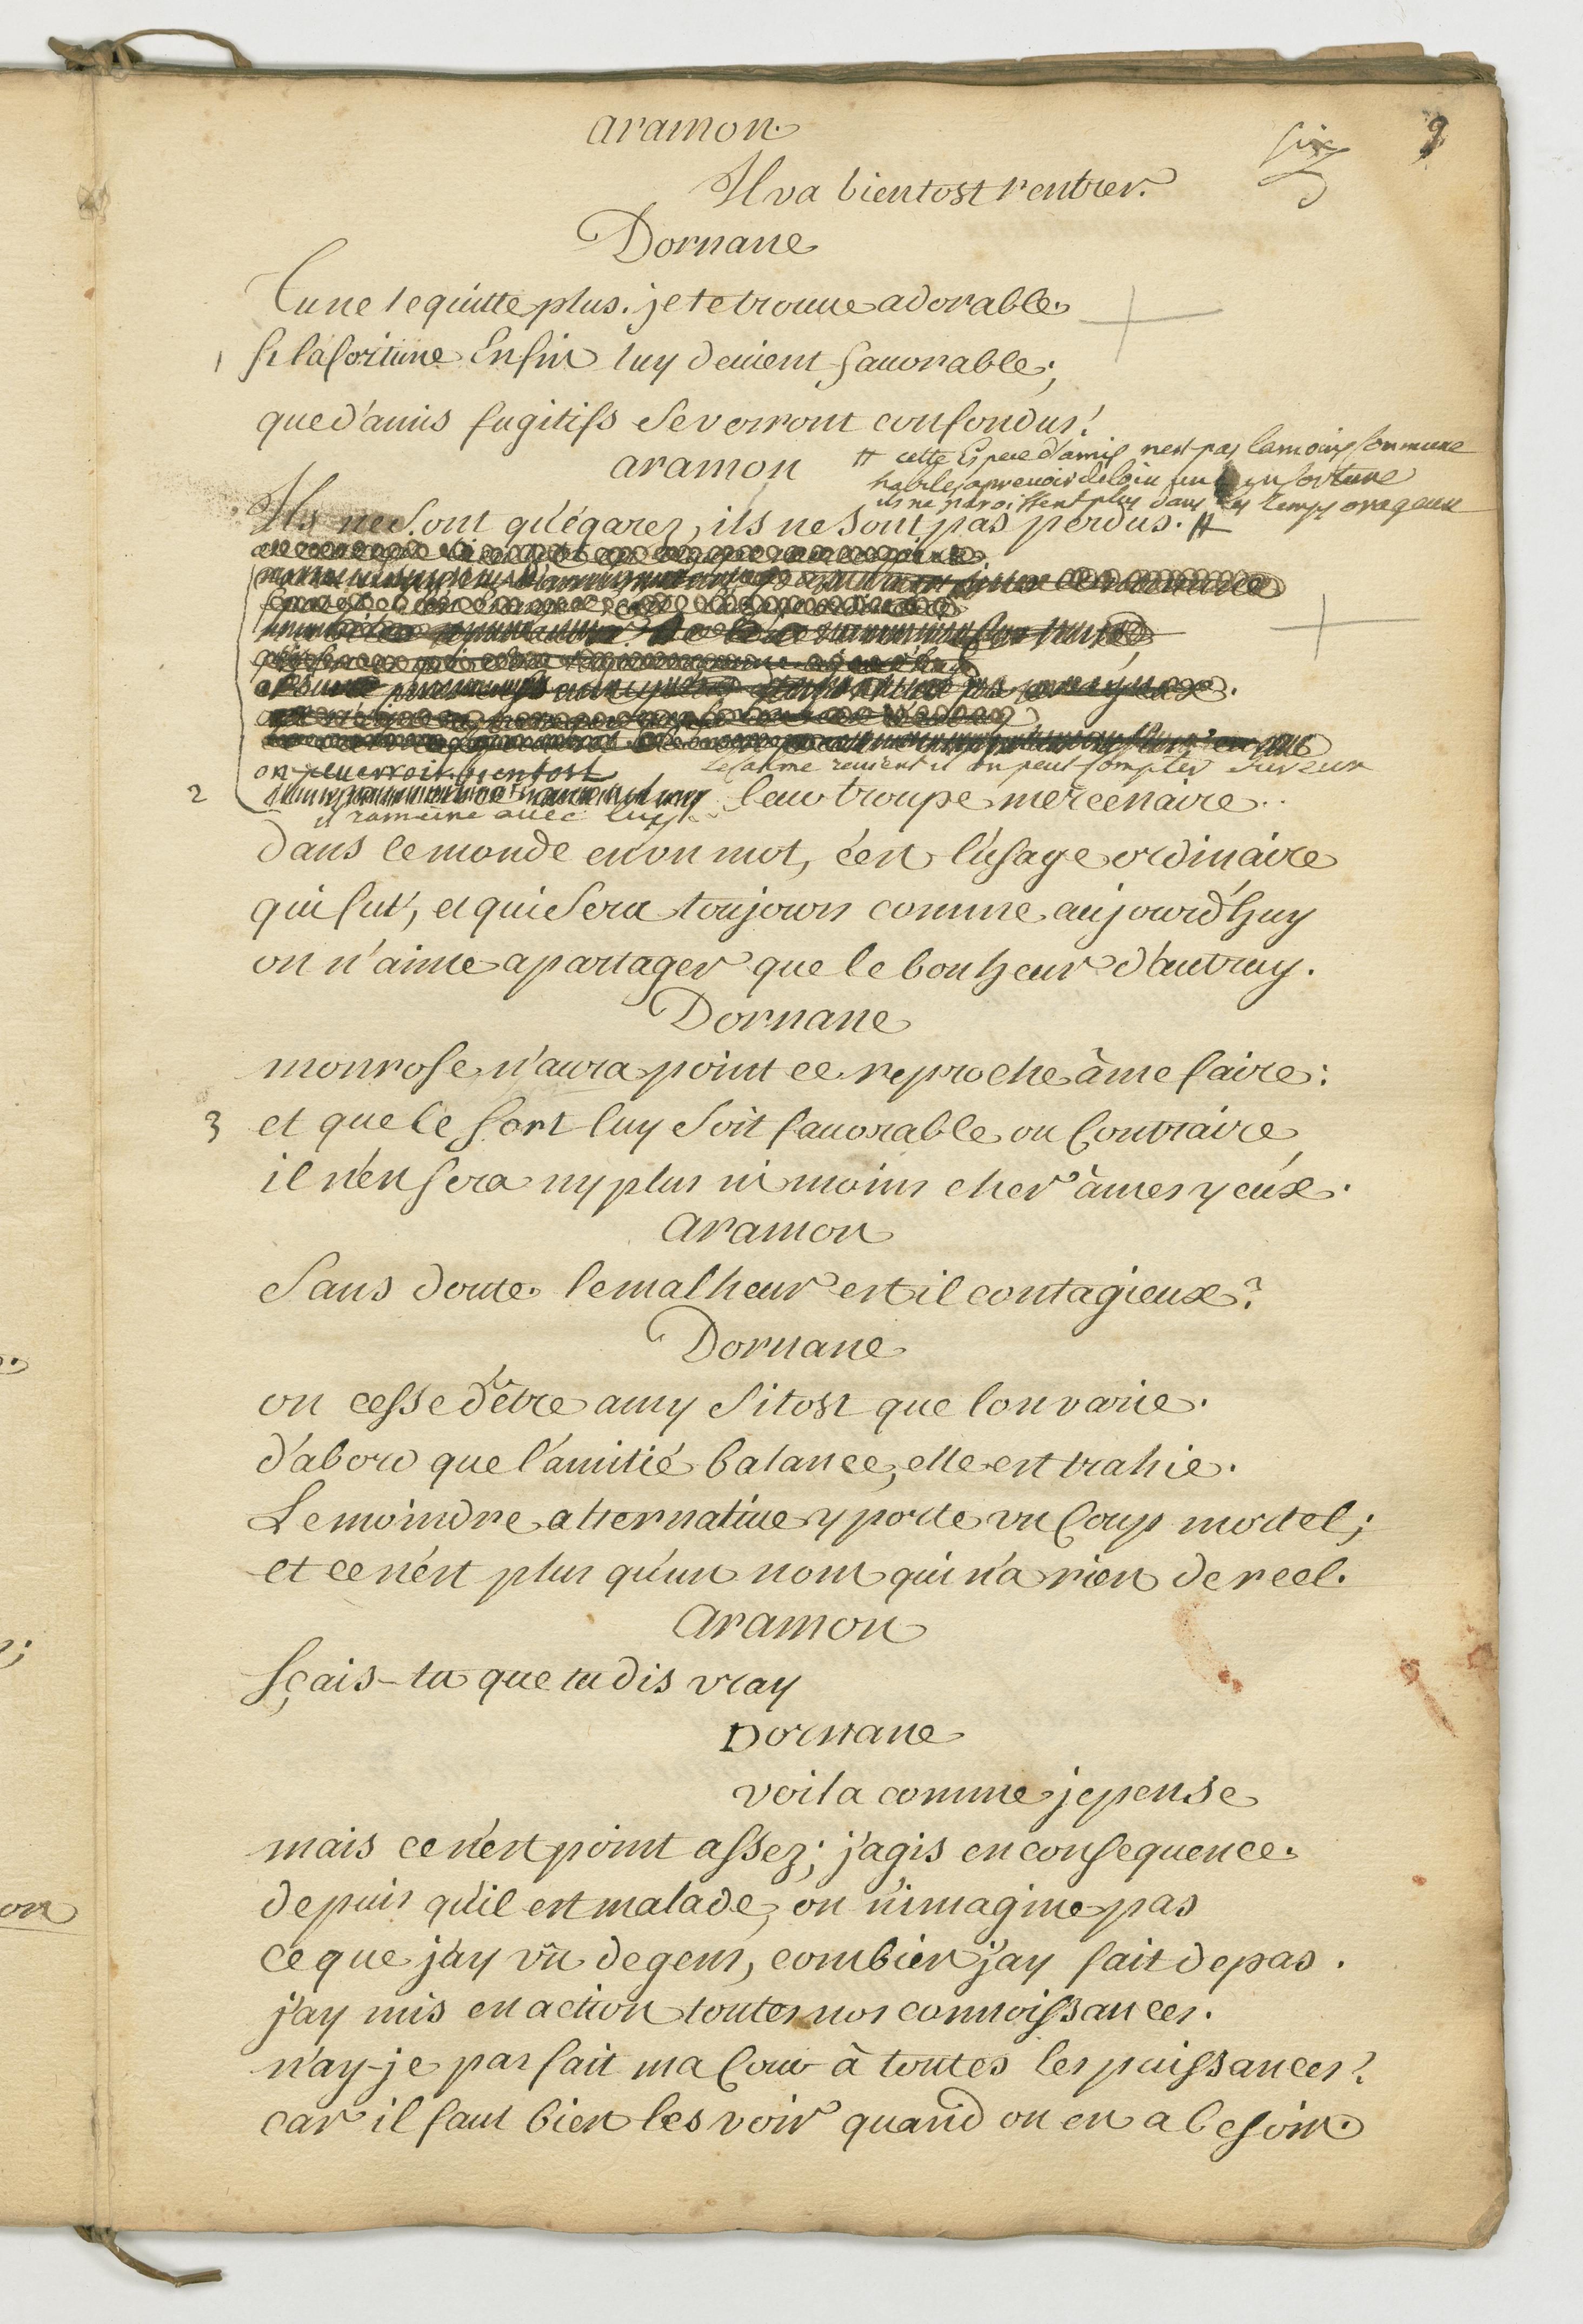 aramon.
six
9
Il va bientost rentrer.
Dornane
Tu ne le quitte plus. je te trouue adorable.
1 si la fortune Enfin luy deuient fauorable;
que d'amis fugitifs se verront confondus!
aramon
# cette Espece d'amis n'est pas la moins Commune
habiles a preuoir de loin une infortune
ils ne paroissent plus dans les temps orageux
Ils ne sont qu'égarez, ils ne sont pas perdus. #
on reuerroit bientost
Le Calme reuient il on peut Compter sur eux
2 leur troupe mercenaire..
il rameine auec luy
dans le monde en un mot, c'est l'usage ordinaire
qui fut, et qui sera toujours comme aujourd'huy
on n'aime a partager que le bonheur d'autruy.
Dornane
monrose n'aura point ce reproche à me faire:
3 et que le sort luy soit fauorable ou Contraire
il n'en sera ny plus ni moins cher à mes yeux.
aramon
Sans doute. le malheur est il contagieux?
Dornane
on cesse d'être amy sitost que l'on varie.
d'abord que l'amitié balance, elle est trahie.
Le moindre alternatiue y porte un Coup mortel;
et ce n'est plus qu'un nom qui n'a rien de reel.
aramon
sçais-tu que tu dis vray
Dornane
voila comme je pense
mais ce n'est point assez; j'agis en consequence.
depuis qu'il est malade, on n'imagine pas
ce que j'ay vû de gens, combien j'ay fait de pas.
j'ay mis en action toutes nos connoissances.
n'ay-je pas fait ma Cour à toutes les puissances?
car il faut bien les voir quand on en a besoin.